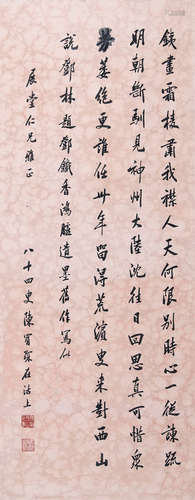 鐵畫霜棱肅我襟人天何限別時心一從諫疏
明朝斷馴見神州大陸沈往日回思真可惜衆
芳萎絕更誰任卅年留得荒濱叟來對西山
說鄧林題鄧鐵香鴻臚遺墨舊作寫似
展堂仁兄雅正
八十四叟陳寶琛在沽上